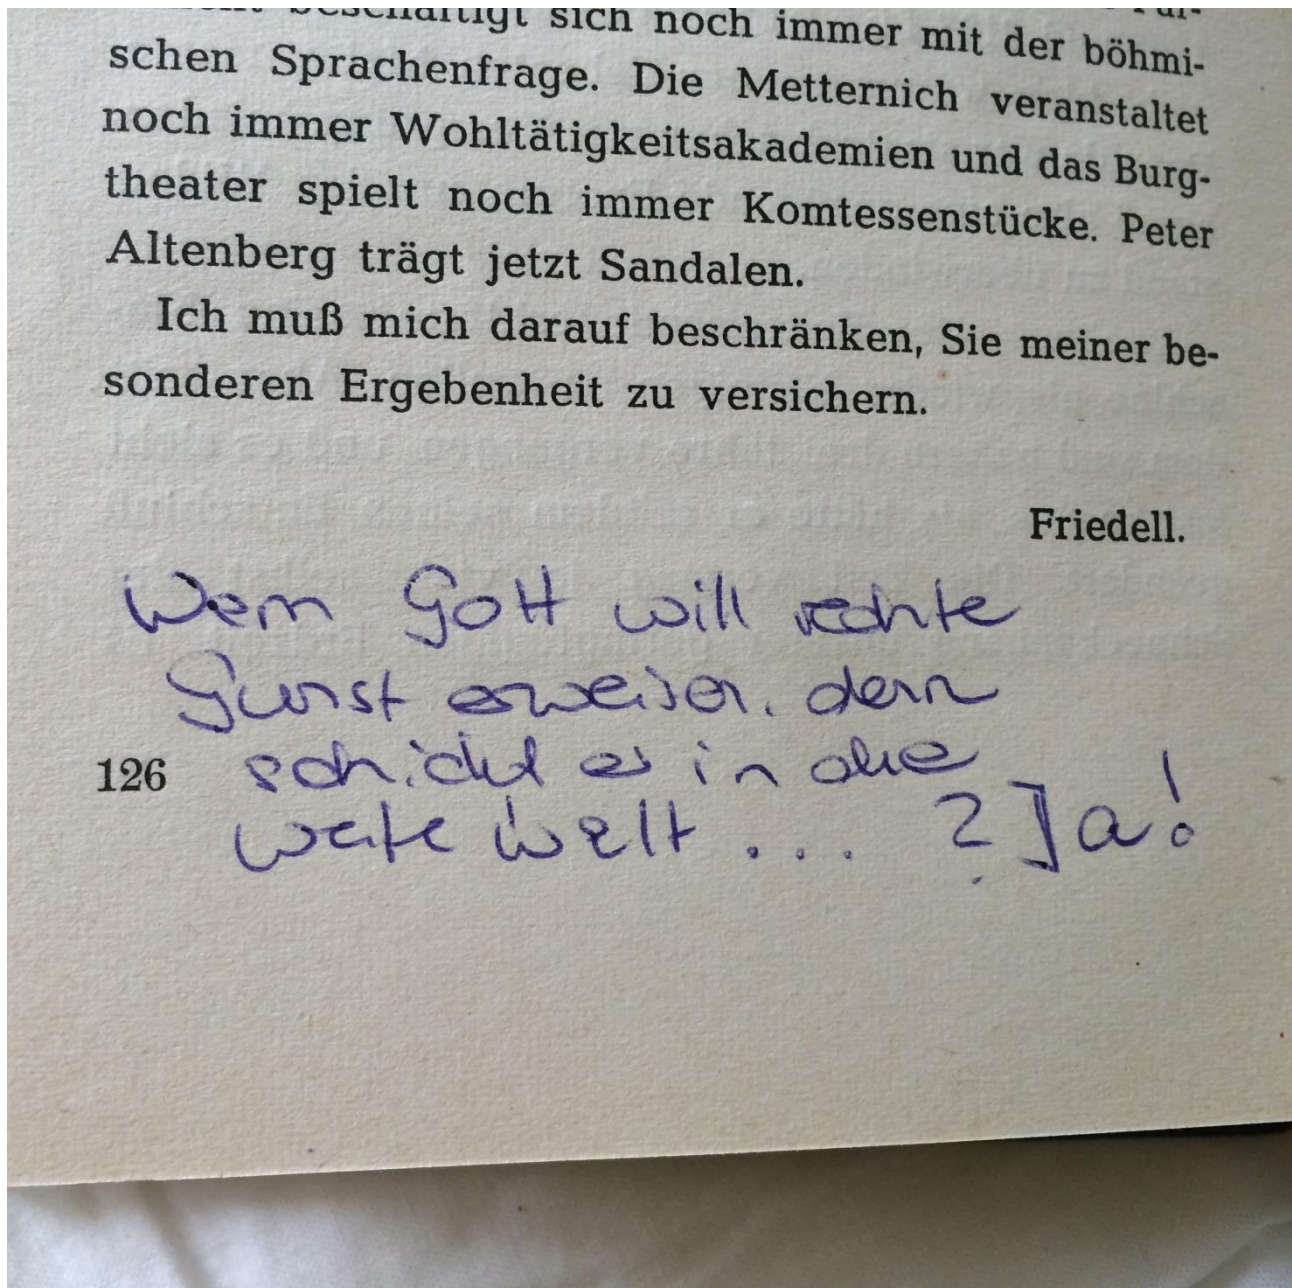 beschäftigt sich noch immer mit der böhmi-
schen Sprachenfrage. Die Metternich veranstaltet
noch immer Wohltätigkeitsakademien und das Burg-
theater spielt noch immer Komtessenstücke. Peter
Altenberg trägt jetzt Sandalen.
Ich muß mich darauf beschränken, Sie meiner be-
sonderen Ergebenheit zu versichern.
Friedell.
Wem Gott will rechte
Gunst erweisen. dem
schickt er in die
126
weite Welt ... ? Ja!